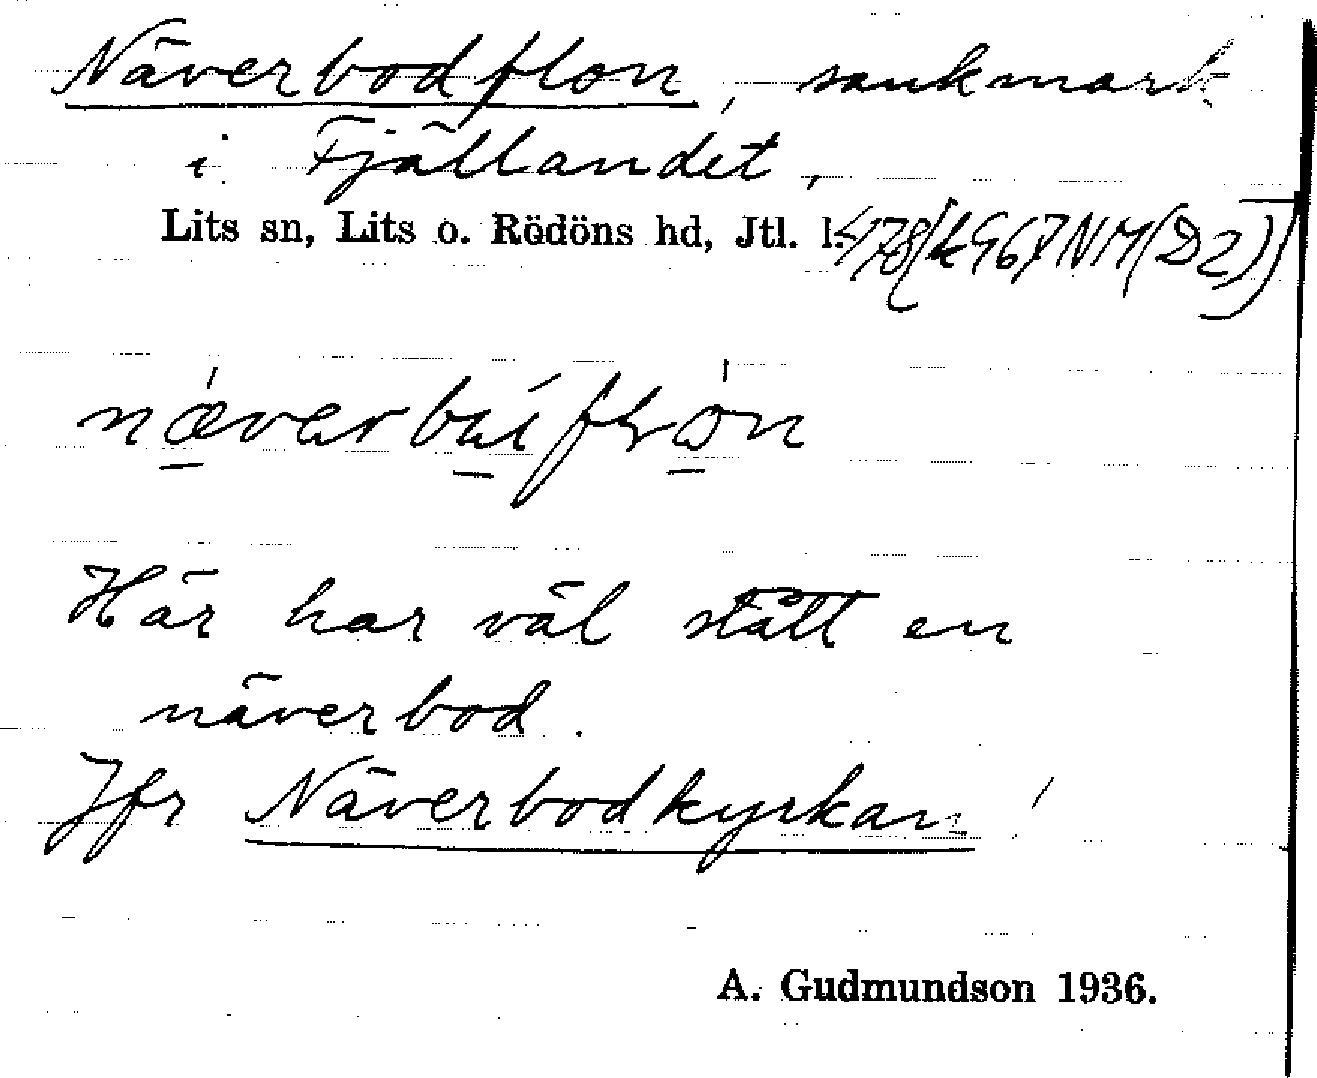 Näverbodflon, sankmark
i Fjällandet,
Lits sn, Lits o. Rödöns hd, Jtl. l.
Här har väl stått en
näverbod.
Jfr Näverbodkyrkan!
A. Gudmundson 1936.